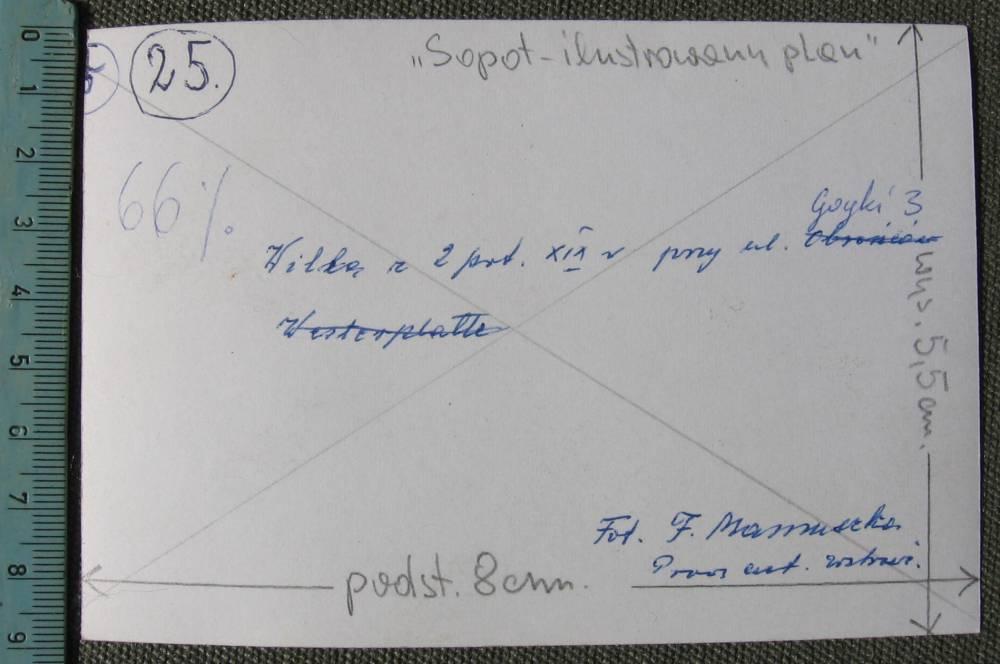 25.
„Sopot - ilustrowany plan”
66%
Goyki 3
Willa z 2 poł. XIX w przy ul. Obrońców
Westerplatte
wys. 5,5 cm.
Fot. F. Mamuszka
Prawa aut. zastrz.
podst. 8 cm.
0
1
2
3
4
5
6
7
8
9